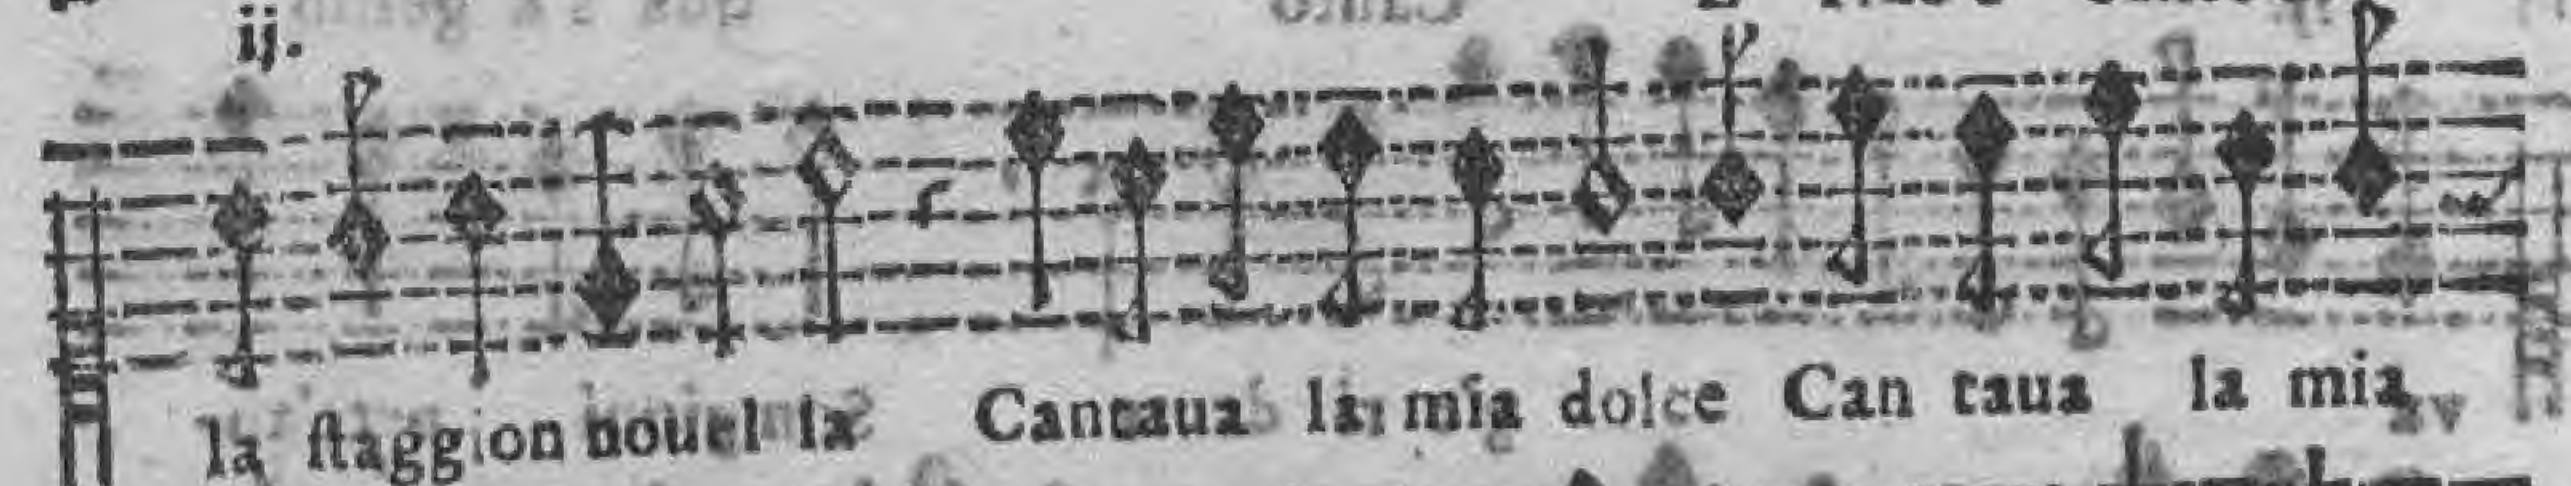 ij.
la ſtaggion nouel la Cantaua la mia dolce Can taua la mia